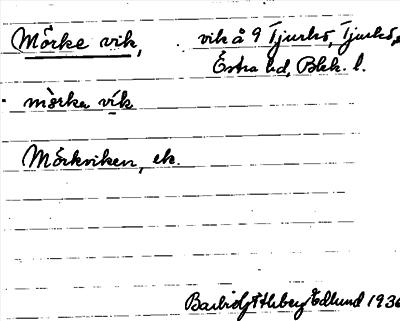 Mörke vik, vik å 9 Tjurkö, Tjurkö,
Östra hd, Blek. l.
mörka vik
Mörkviken, ek.
Ohberg Edlund 1936